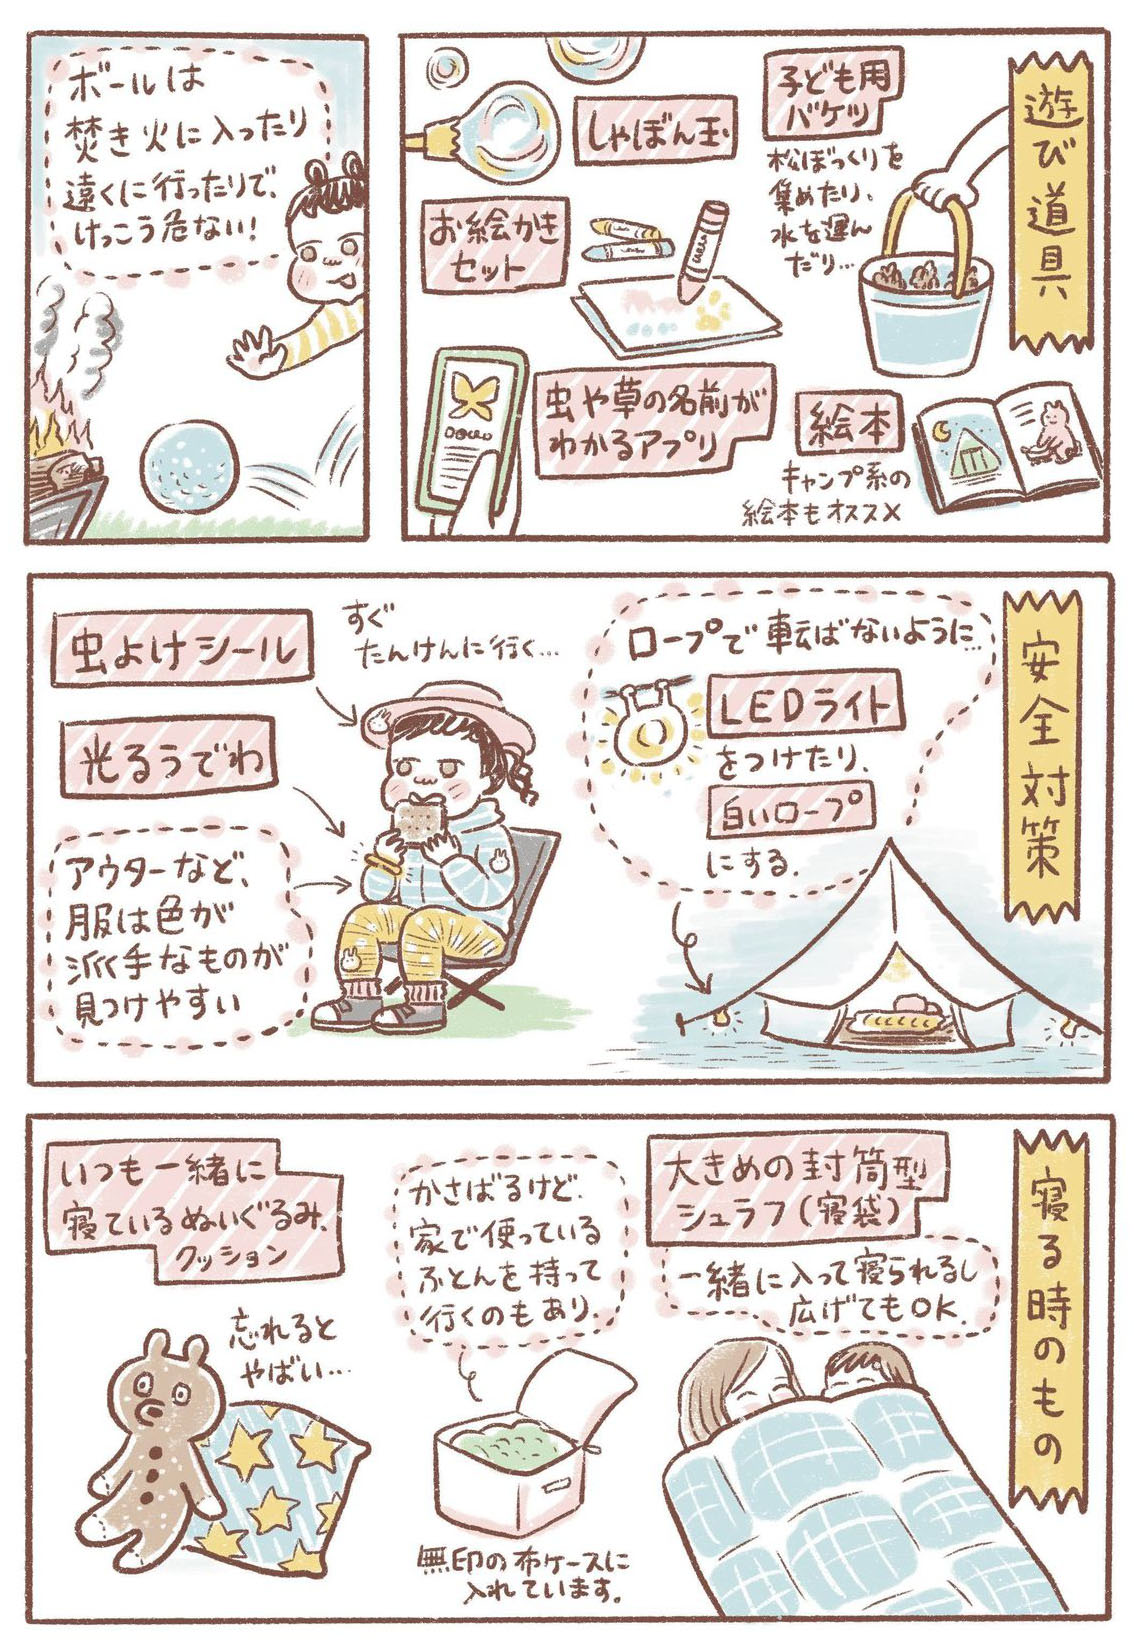 遊び道具
子ども用
バケツ
松ぼっくりを
集めたり、
水を運ん
だり…
しゃぼん玉
お絵かき
セット
虫や草の名前が
わかるアプリ
絵本
キャンプ系の
絵本もオススメ
ボールは
焚き火に入ったり
遠くに行ったりで、
けっこう危ない!
安全対策
ロープで転ばないように…
LEDライト
をつけたり、
白いロープ
にする.
すぐ
たんけんに行く…
虫よけシール
光るうでわ
アウターなど、
服は色が
派手なものが
見つけやすい
寝る時のもの
大きめの封筒型
シュラフ(寝袋)
一緒に入って寝られるし
広げてもOK.
かさばるけど、
家で使っている
ふとんを持って
行くのもあり.
無印の布ケースに
入れています。
いつも一緒に
寝ているぬいぐるみ、
クッション
忘れると
やばい…